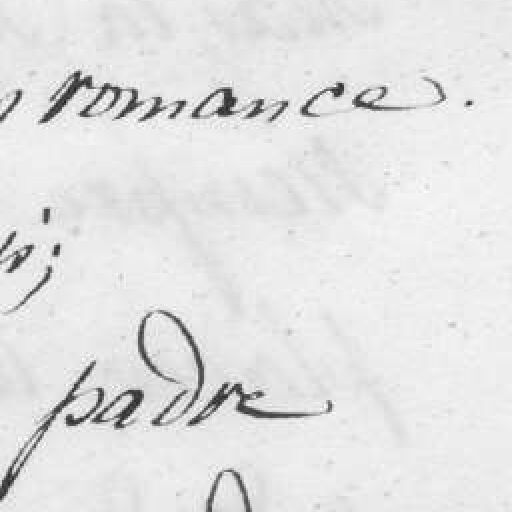 romance.
padre